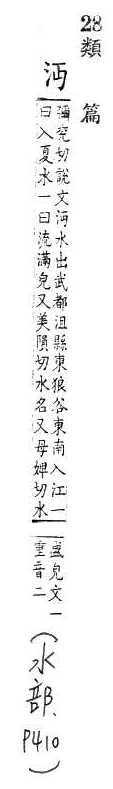 28 類篇
沔
彌兖切說文沔水出武都沮縣東狼谷東南入江一
曰入夏水一曰流滿皃又美隕切水名又母婢切水
盛皃文一
重音二
(水部、P410)